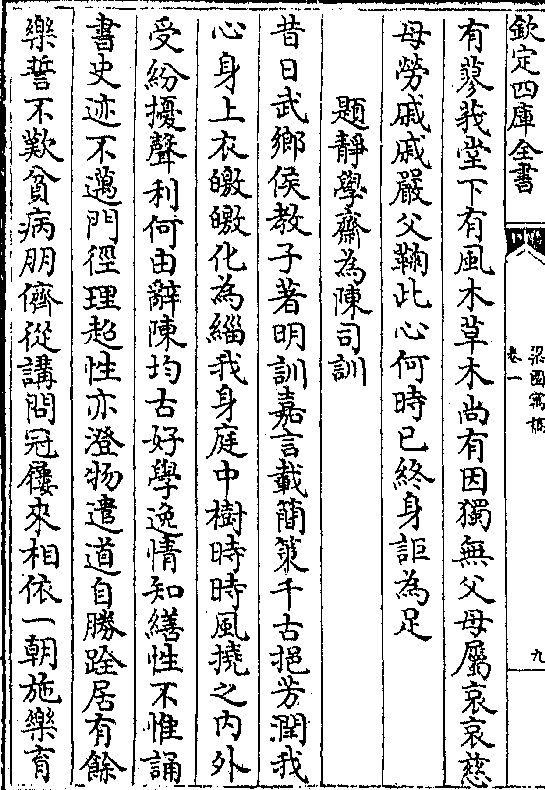 欽定四庫全書
梁園寓稿
卷一
九
有蓼莪堂下有風木草木尚有因獨無父母屬哀哀慈
母勞戚戚嚴父鞠此心何時已終身詎為足
題靜學齋為陳司訓
昔日武鄉侯教子著明訓嘉言載簡策千古挹芳潤我
心身上衣皦皦化為緇我身庭中樹時時風撓之内外
受紛擾聲利何由辭陳均古好學逸情知繕性不惟誦
書史迹不邁門徑理超性亦澄物遣道自勝跧居有餘
樂誓不歎貧病朋儕從講問冠屨來相依一朝施樂育